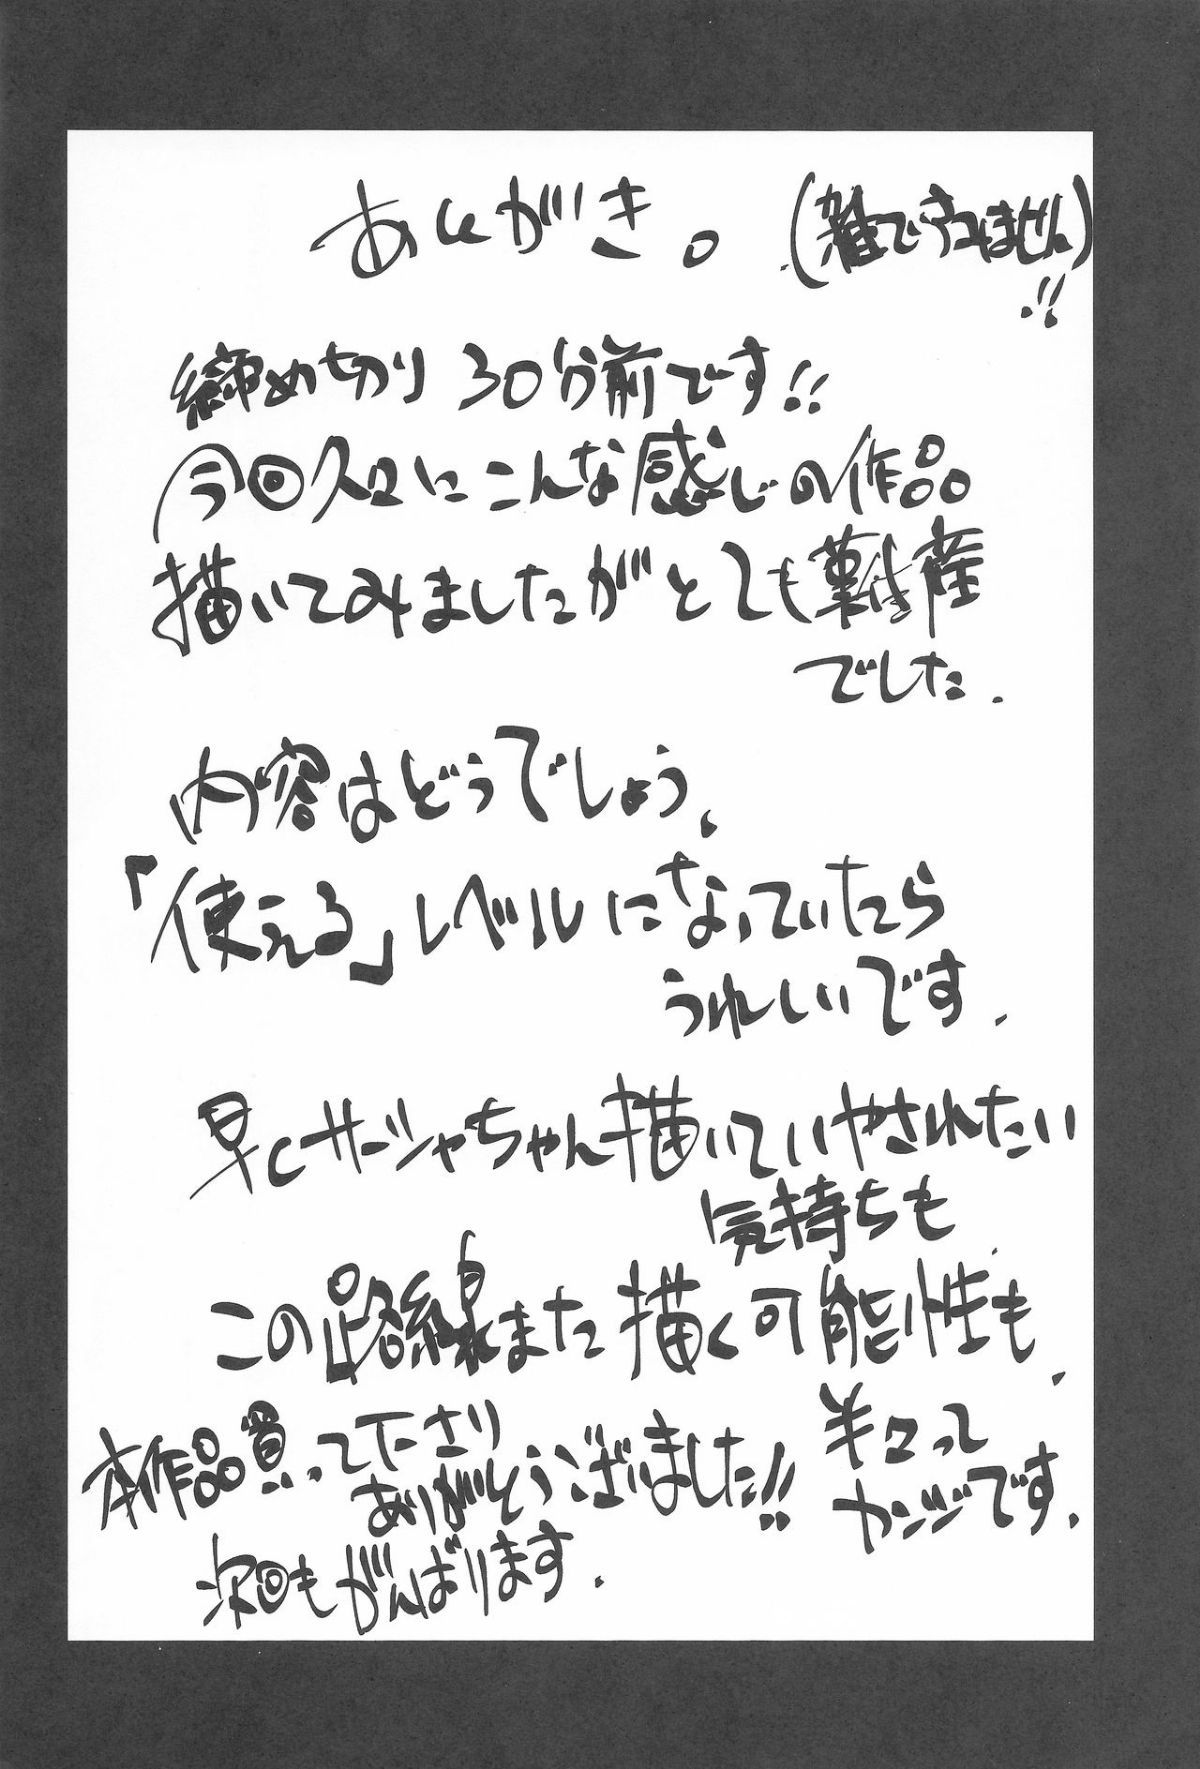 あとがき。 (雑ですみません)!!
締め切り30分前です!!
今回久々にこんな感じの作品
描いてみましたがとても難産
でした.
内容はどうでしょう、
「使える」レベルになっていたら
うれしいです.
早くサーシャちゃん描いていやされたい
気持ちも
この路線また描く可能性も、
半々って
カンジです、
本作品買って下さり
ありがとうございました!!
次回もがんばります.